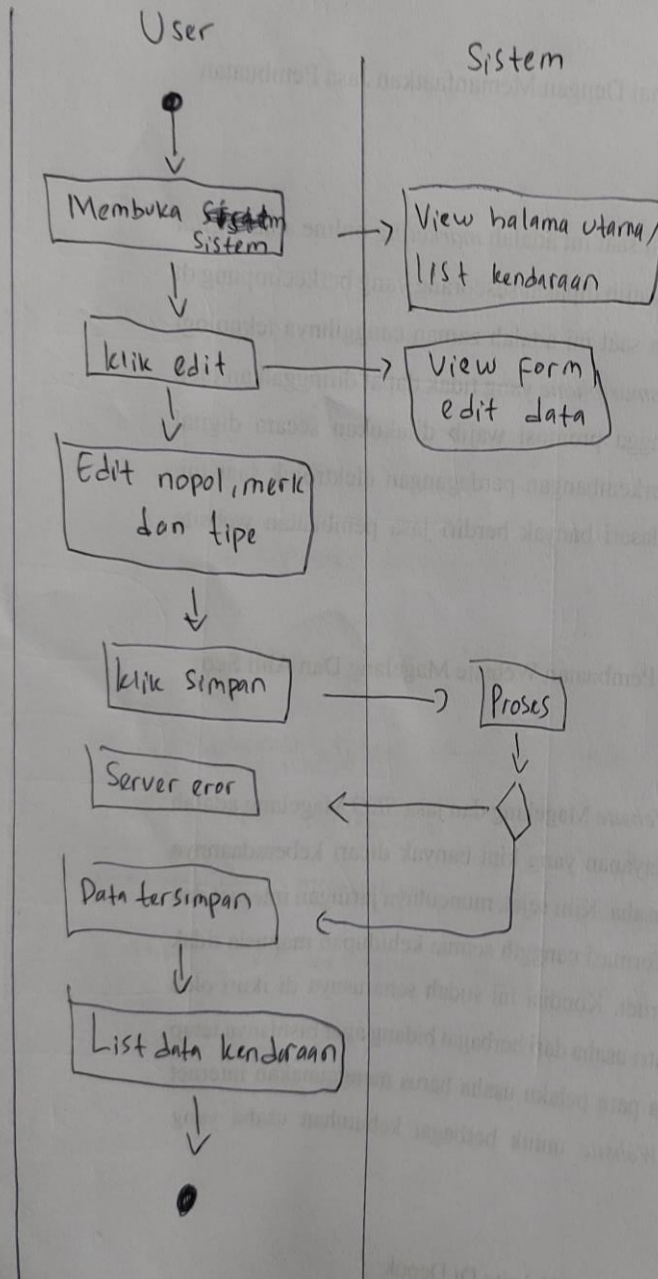 User
Sistem
Membuka
sistem
View halama utama/
list kendaraan
klik edit
View Form
edit data
Edit nopol, merk
dan tipe
klik simpan
Proses
Server eror
Data tersimpan
List data kendaraan